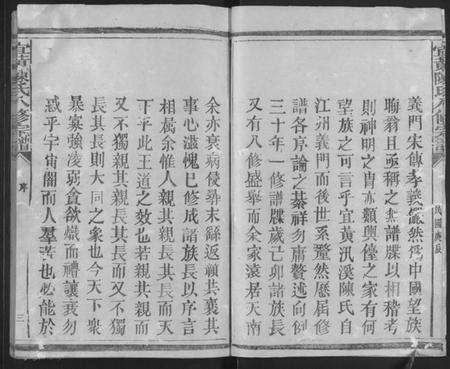 宜黃陳氏八修宗譜
民國庚辰
義門宋傳孝義儼然為中國望族
晦翁且亟稱之在譜牒以相稽考
則神明之胄亦類輿儓之家有何
望族之可言乎宜黃汎溪陳氏自
江州義門而後世系釐然歷屆修
譜各序論之綦祥勿庸贅述向例
三十年一修譜牒歲己卯諸族長
又有八修盛舉而余家遠居天南
余亦衰病侵尋未緜返顧其襄其
事心滋愧已修成諸族長以序言
相屬余惟人親其親長其長而天
下平此王道之效也若親其親而
又不獨親其親長其長而又不獨
長其長則大同之象也今天下衆
暴寡強凌弱貪欲熾而禮讓衰勿
慼乎宇甯闇而人羣害也必能於
宜黃陳氏八修宗譜
序
三